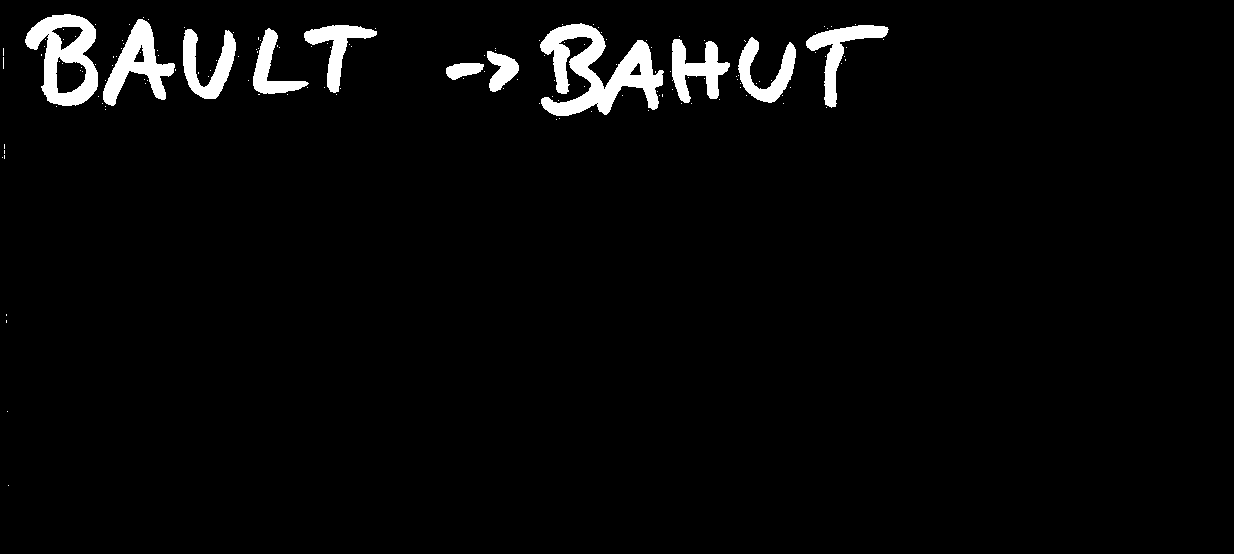 BAULT -> BAHUT